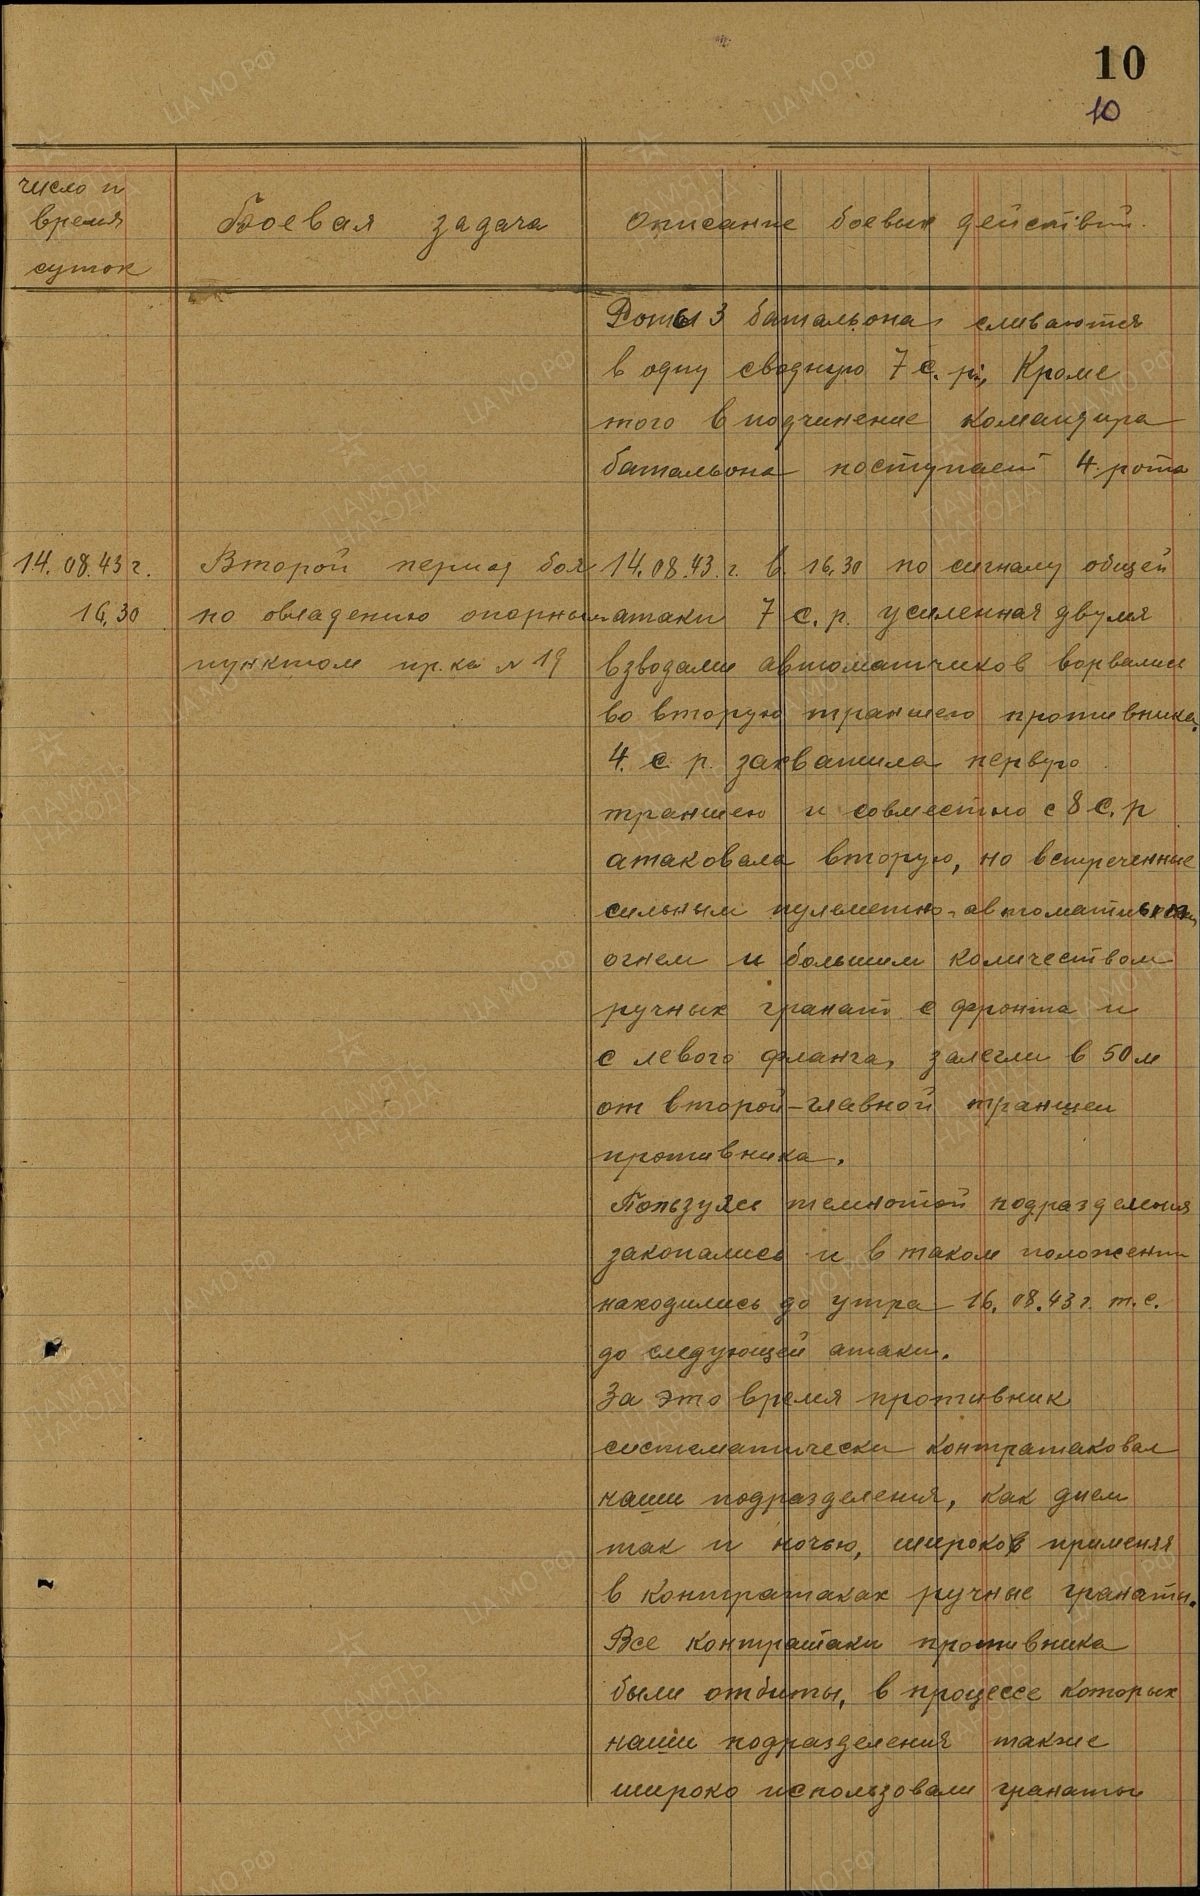 10
10
число и
время
суток
Боевая задача
Описание боевых действий.
Роты 3 батальона сливаются
в одну сводную 7 с. р., Кроме
того в подчинение командира
батальона поступает 4. рота
14.08.43 г.
16.30
Второй период боя
по овладению опорным
пунктом пр.ка № 19
14.08.43. г. в 16.30 по сигналу общей
атаки 7 с. р. усиленная двумя
взводами автоматчиков ворвались
во вторую траншею противника.
4. с. р. захватила первую
траншею и совместно с 8 с. р
атаковала вторую, но встреченные
сильным пулеметно-автоматным
огнем и большим количеством
ручных гранат с фронта и
с левого фланга, залегли в 50 м
от второй-главной траншеи
противника.
Пользуясь темнотой подразделения
закопались и в таком положении
находились до утра 16.08.43 г. т.е.
до следующей атаки.
За это время противник
систематически контратаковал
наши подразделения, как днем
так и ночью, широко применяя
в контратаках ручные гранаты.
Все контратаки противника
были отбиты, в процессе которых
наши подразделения также
широко использовали гранаты
ЦА МО РФ
ПАМЯТЬ
НАРОДА